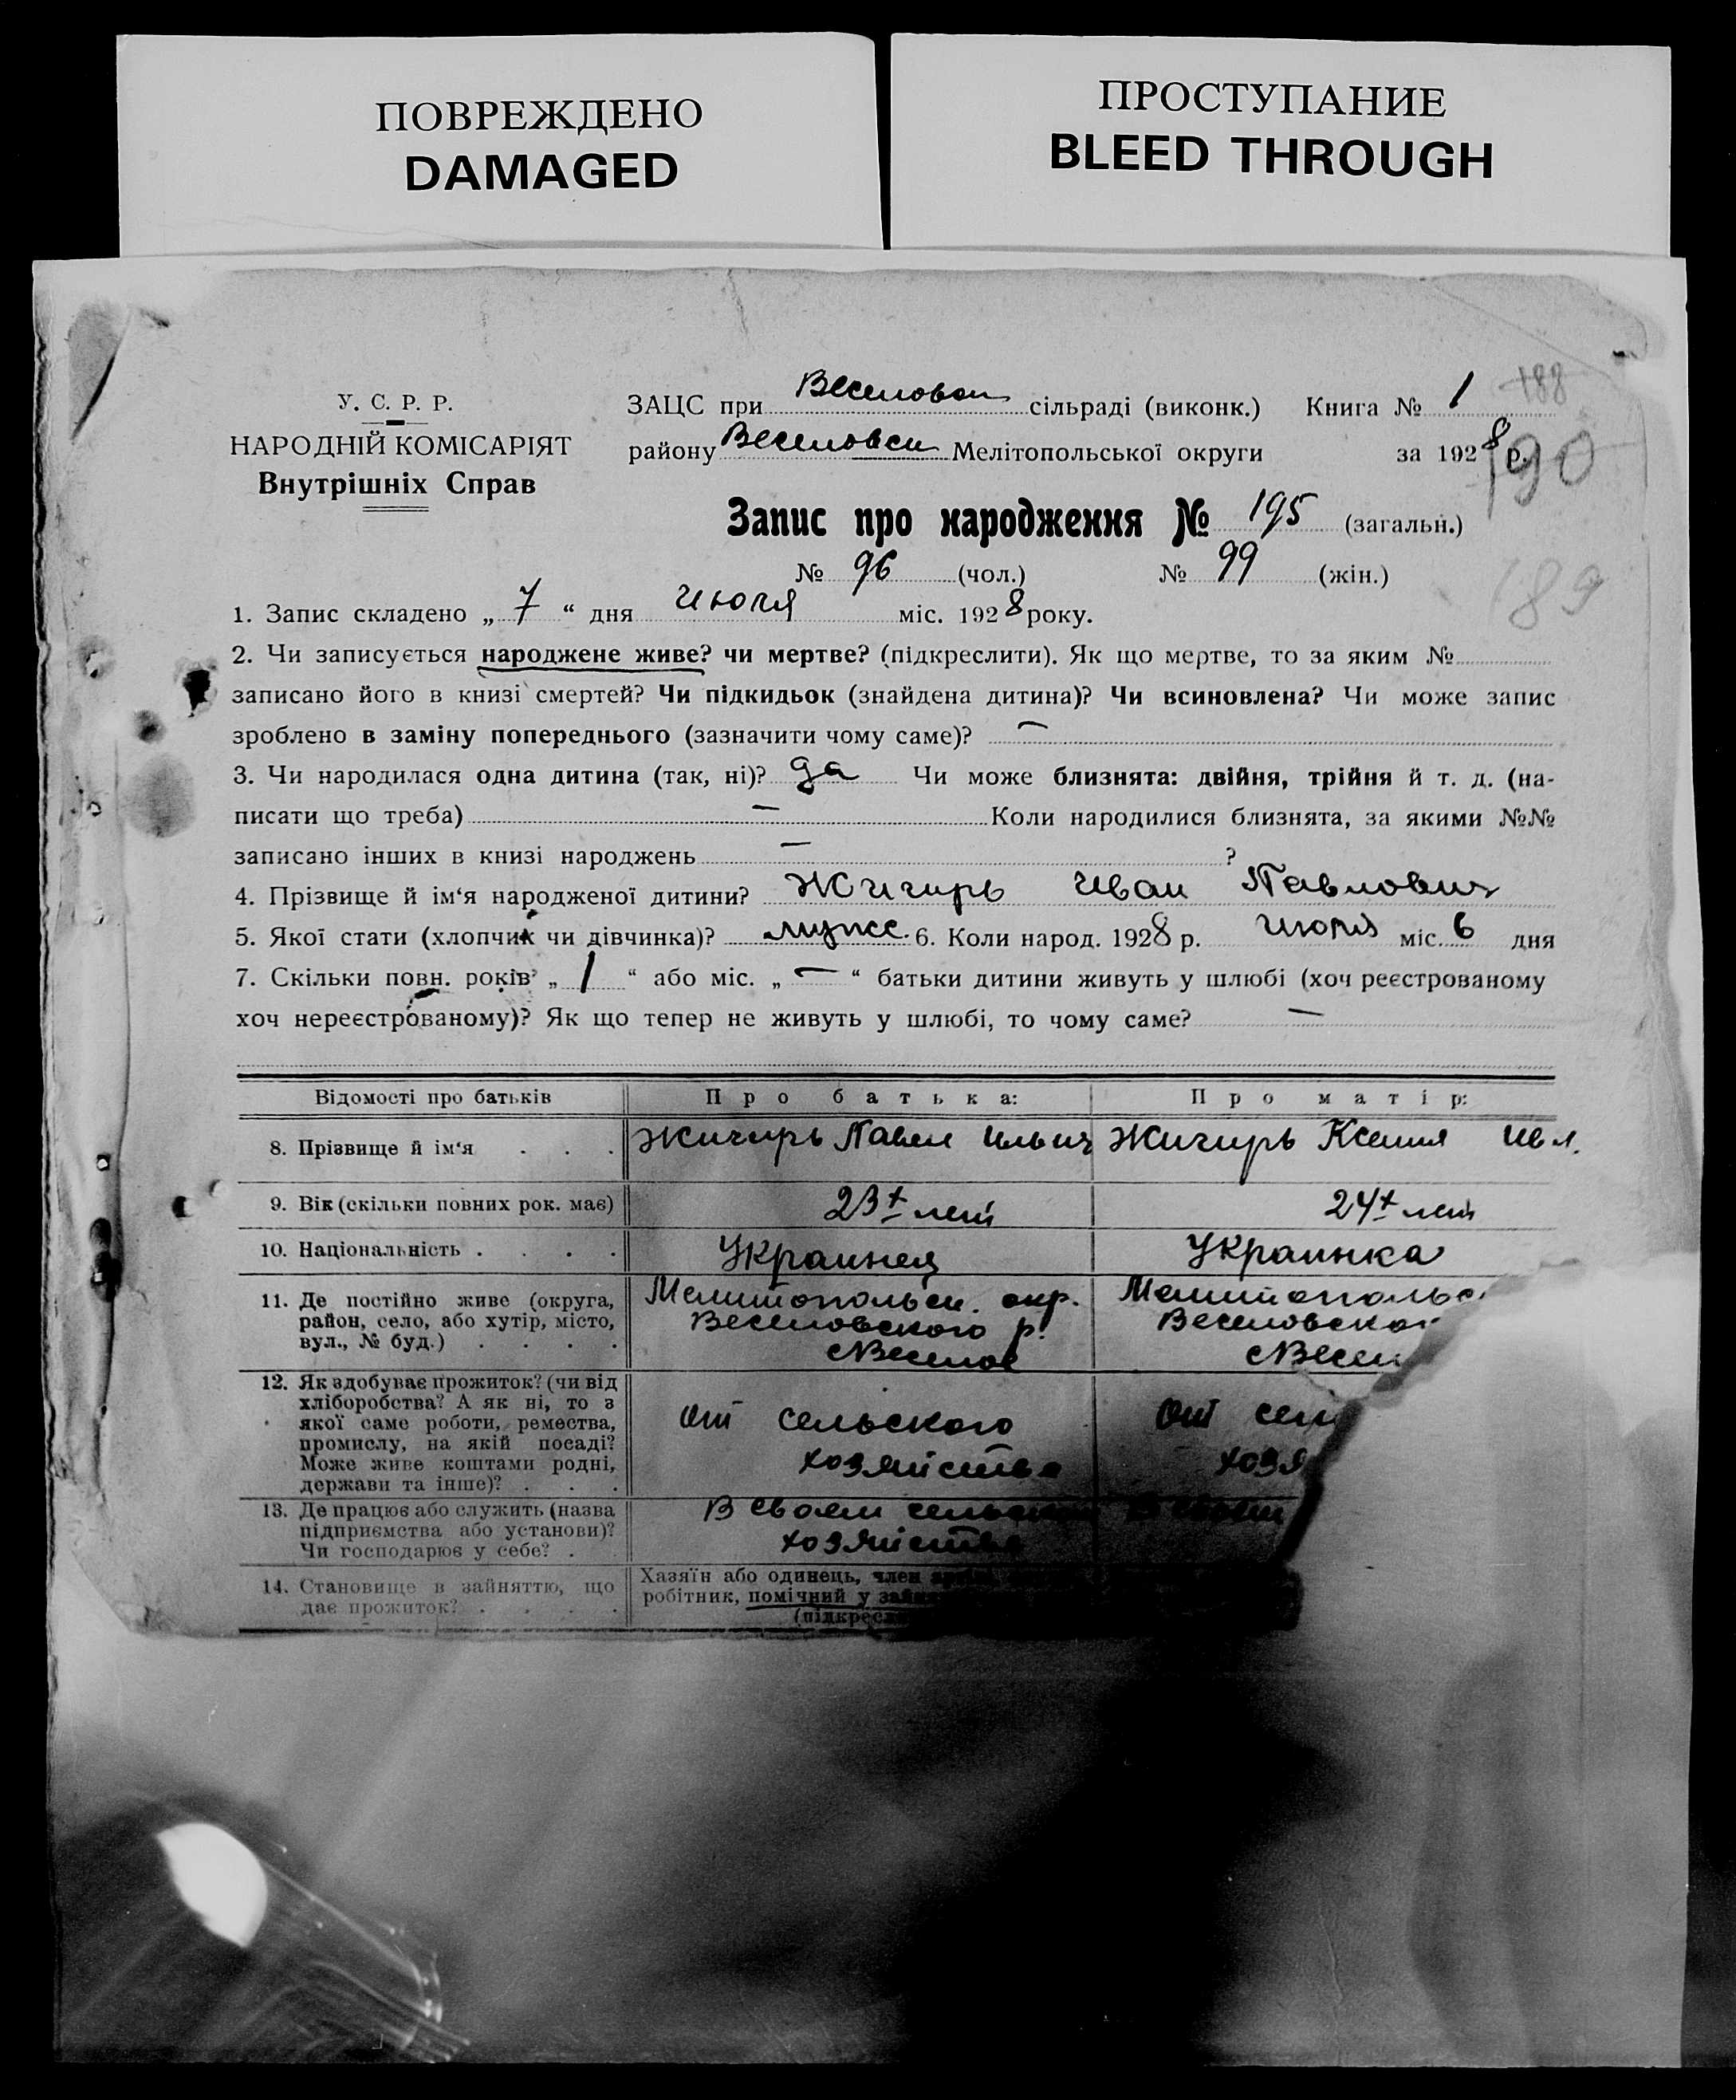 ПОВРЕЖДЕНО
DAMAGED
ПРОСТУПАНИЕ
BLEED THROUGH
У. С. Р. Р.
НАРОДНІЙ КОМІСАРІЯТ
Внутрішніх Справ
ЗАЦС при Веселовск сільраді (виконк.) Книга № 1 188
району Веселовск Мелітопольської округи за 1928 р. 190
Запис про народження № 195 (загальн.)
№ 96 (чол.) № 99 (жін.)
189
1. Запис складено „ 7 “ дня Июля міс. 1928 року.
2. Чи записується народжене живе? чи мертве? (підкреслити). Як що мертве, то за яким №
записано його в книзі смертей? Чи підкидьок (знайдена дитина)? Чи всиновлена? Чи може запис
зроблено в заміну попереднього (зазначити чому саме)? —
3. Чи народилася одна дитина (так, ні)? да Чи може близнята: двійня, трійня й т. д. (на-
писати що треба) — Коли народилися близнята, за якими №№
записано інших в книзі народжень — ?
4. Прізвище й ім‘я народженої дитини? Жигирь Иван Павлович
5. Якої стати (хлопчик чи дівчинка)? мужс. 6. Коли народ. 1928 р. Июля міс. 6 дня
7. Скільки повн. років „ 1 “ або міс. „ — “ батьки дитини живуть у шлюбі (хоч реєстрованому
хоч нереєстрованому)? Як що тепер не живуть у шлюбі, то чому саме? —
Відомості про батьків Про батька: Про матір:
8. Прізвище й ім‘я . . . Жигирь Павел Ильич Жигирь Ксения
9. Вік (скільки повних рок. має) 23 лет 24 лет
10. Національність . . . . Украинец Украинка
11. Де постійно живе (округа, Мелитопольск. окр. Мелитопольс
район, село, або хутір, місто, Веселовского р. Веселовског
вул., № буд.) . . . . с Веселое с Весел
12. Як здобуває прожиток? (чи від
хліборобства? А як ні, то з
якої саме роботи, ремества, От сельского От сель
промислу, на якій посаді?
Може живе коштами родні, хозяйства хозя
держави та інше)? . . .
13. Де працює або служить (назва В своем сельском В своем
підприємства або установи)?
Чи господарює у себе? . хозяйстве
14. Становище в зайняттю, що Хазяїн або одинець, член
дає прожиток? . . . . робітник, помічний у
(підкресл